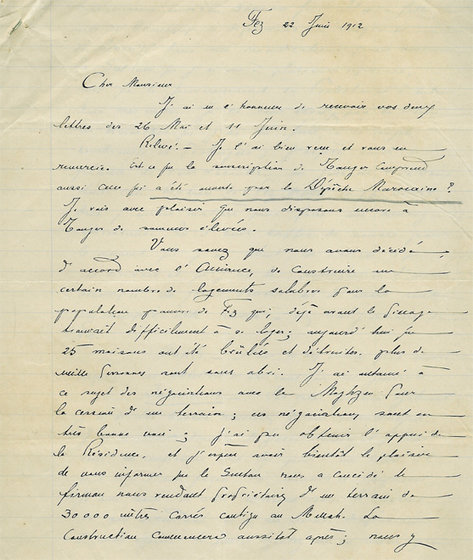 Fez 22 Juin 1912
Cher Monsieur
J'ai eu l'honneur de recevoir vos deux
lettres des 26 Mai et 11 Juin.
Relevé. — Je l'ai bien reçu et vous en
remercie. Est-ce que la souscription de Tanger comprend
aussi celle qui a été ouverte par la Dépêche Marocaine ?
Je vois avec plaisir que nous disposons encore à
Tanger de sommes élevées.
Vous savez que nous avons décidé,
d'accord avec l'Alliance, de construire un
certain nombre de logements salubres pour la
population pauvre de Fez qui, déjà avant le pillage
trouvait difficilement à se loger; aujourd'hui que
25 maisons ont été brûlées et détruites plus de
mille personnes sont sans abri. J'ai entamé à
ce sujet des négociations avec le Maghzen pour
la cession d'un terrain; ces négociations sont en
très bonne voie; j'ai pu obtenir l'appui de
la Résidence, et j'espère avoir bientôt le plaisir
de vous informer que le Sultan nous a concédé le
firman nous rendant propriétaire d'un terrain de
30000 mètres carrés contigu au Mellah. La
construction commencera aussitôt après; nous y